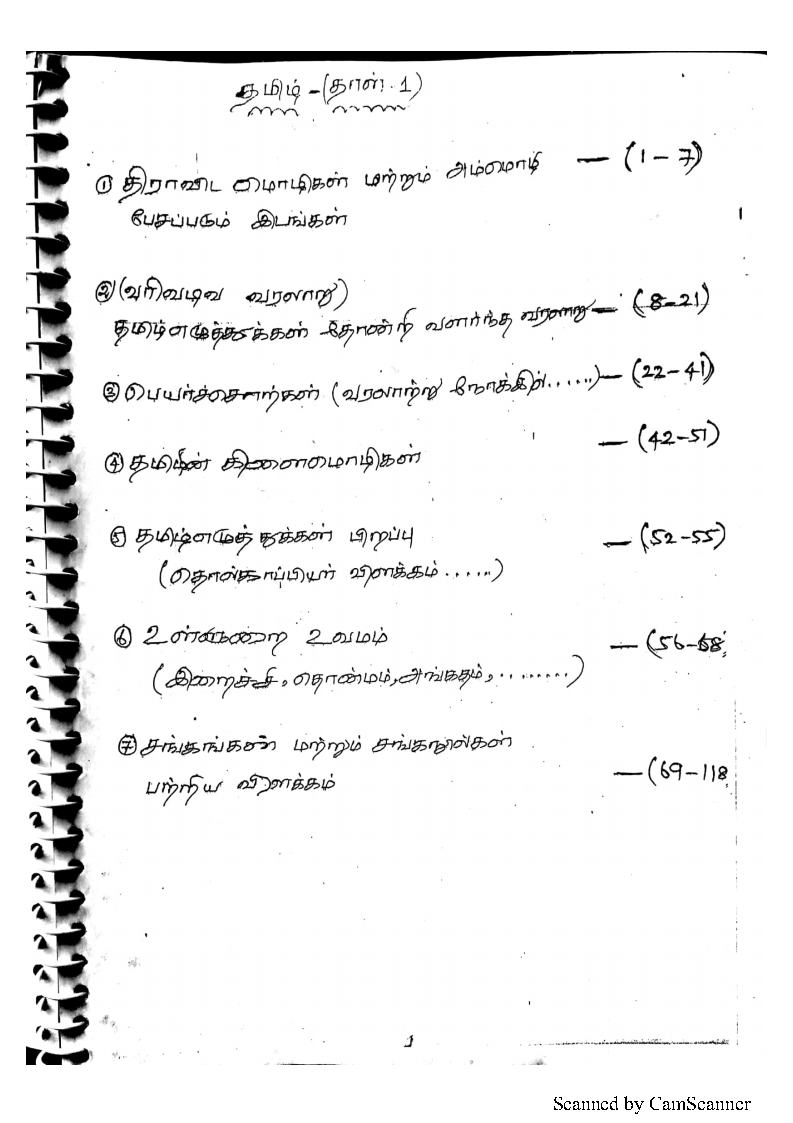 தமிழ் - (தாள். 1)
① திராவிட மொழிகள் மற்றும் அம்மொழி — (1 - 7)
பேசப்படும் இடங்கள்
② (வரிவடிவ வரலாறு)
தமிழ்எழுத்துக்கள் தோன்றி வளர்ந்த வரலாறு — (8-21)
③ பெயர்ச்சொற்கள் (வரலாற்று நோக்கில்......) — (22 - 41)
④ தமிழின் கிளைமொழிகள் — (42-51)
⑤ தமிழ்எழுத்துக்கள் பிறப்பு — (52-55)
(தொல்காப்பியர் விளக்கம்......)
⑥ உள்ளுறை உவமம் — (56-68
(இறைச்சி, தொன்மம், அங்கதம், .........)
⑦ சங்கங்கள் மற்றும் சங்கநூல்கள்
பற்றிய விளக்கம் — (69-118
1
Scanned by CamScanner